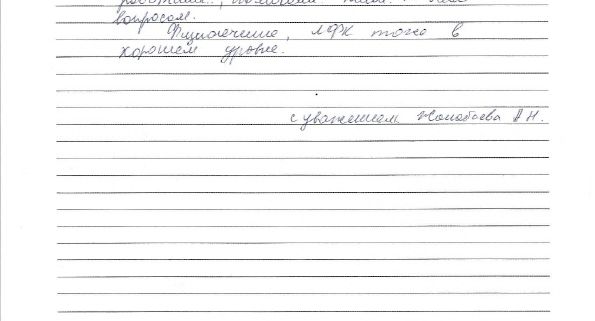 вопросом.
Физиолечение, ЛФК тоже в
хорошем уровне.
с уважением Жанабаева А Н.